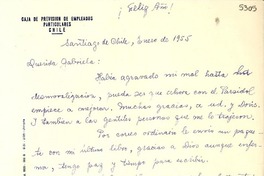 ¡Feliz Año!
5303
CAJA DE PREVISION DE EMPLEADOS
PARTICULARES
CHILE
Santiago de Chile, Enero de 1955
Querida Gabriela:
Había agravado mi mal hasta la
desmoralización, pueda ser que ahora con el
empiece a mejorar. Muchas gracias, a ud. y Doris.
I también a las gentiles personas que me lo trajeron.
Por correo ordinario le envío mi
te con mi último libro, gracias a Dios aunque enfer-
mo, tengo paz y tiempo para escribir.